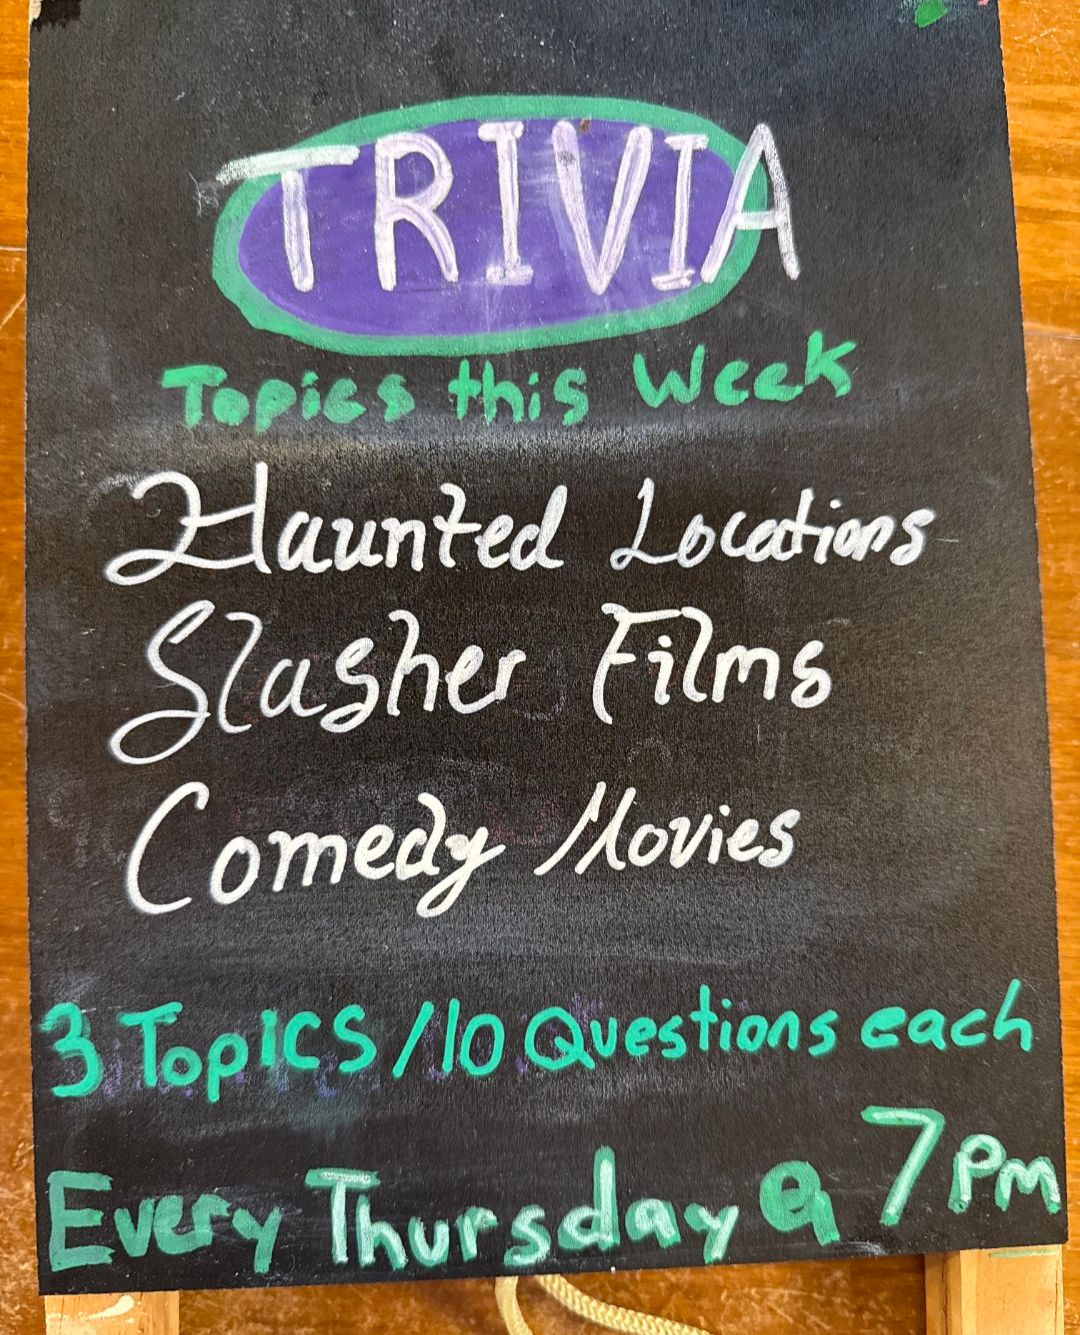 TRIVIA
Topics this Week
Haunted Locations
Slasher Films
Comedy Movies
3 TOPICS / 10 Questions each
Every Thursday @ 7pm